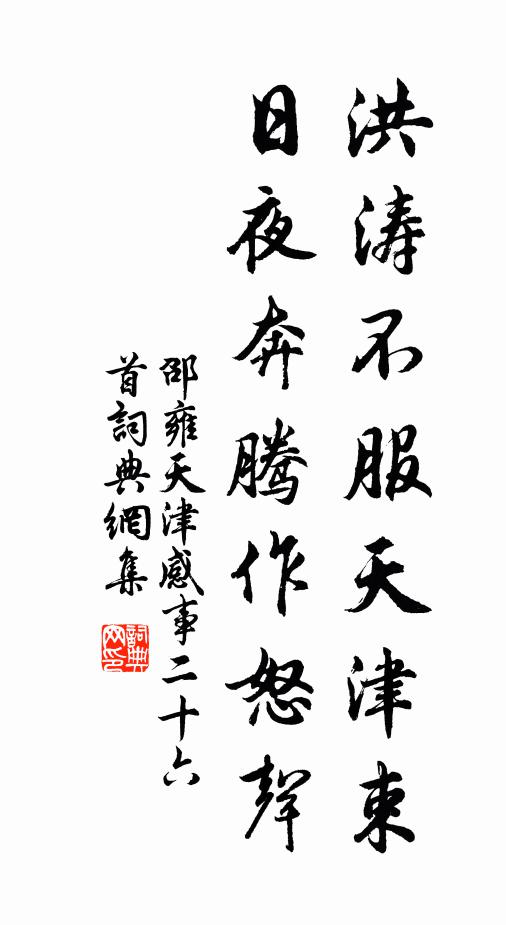 洪涛不服天津束
日夜奔腾作怒聲
邵雍天津感事二十六
首詞典網集
詞典
网印